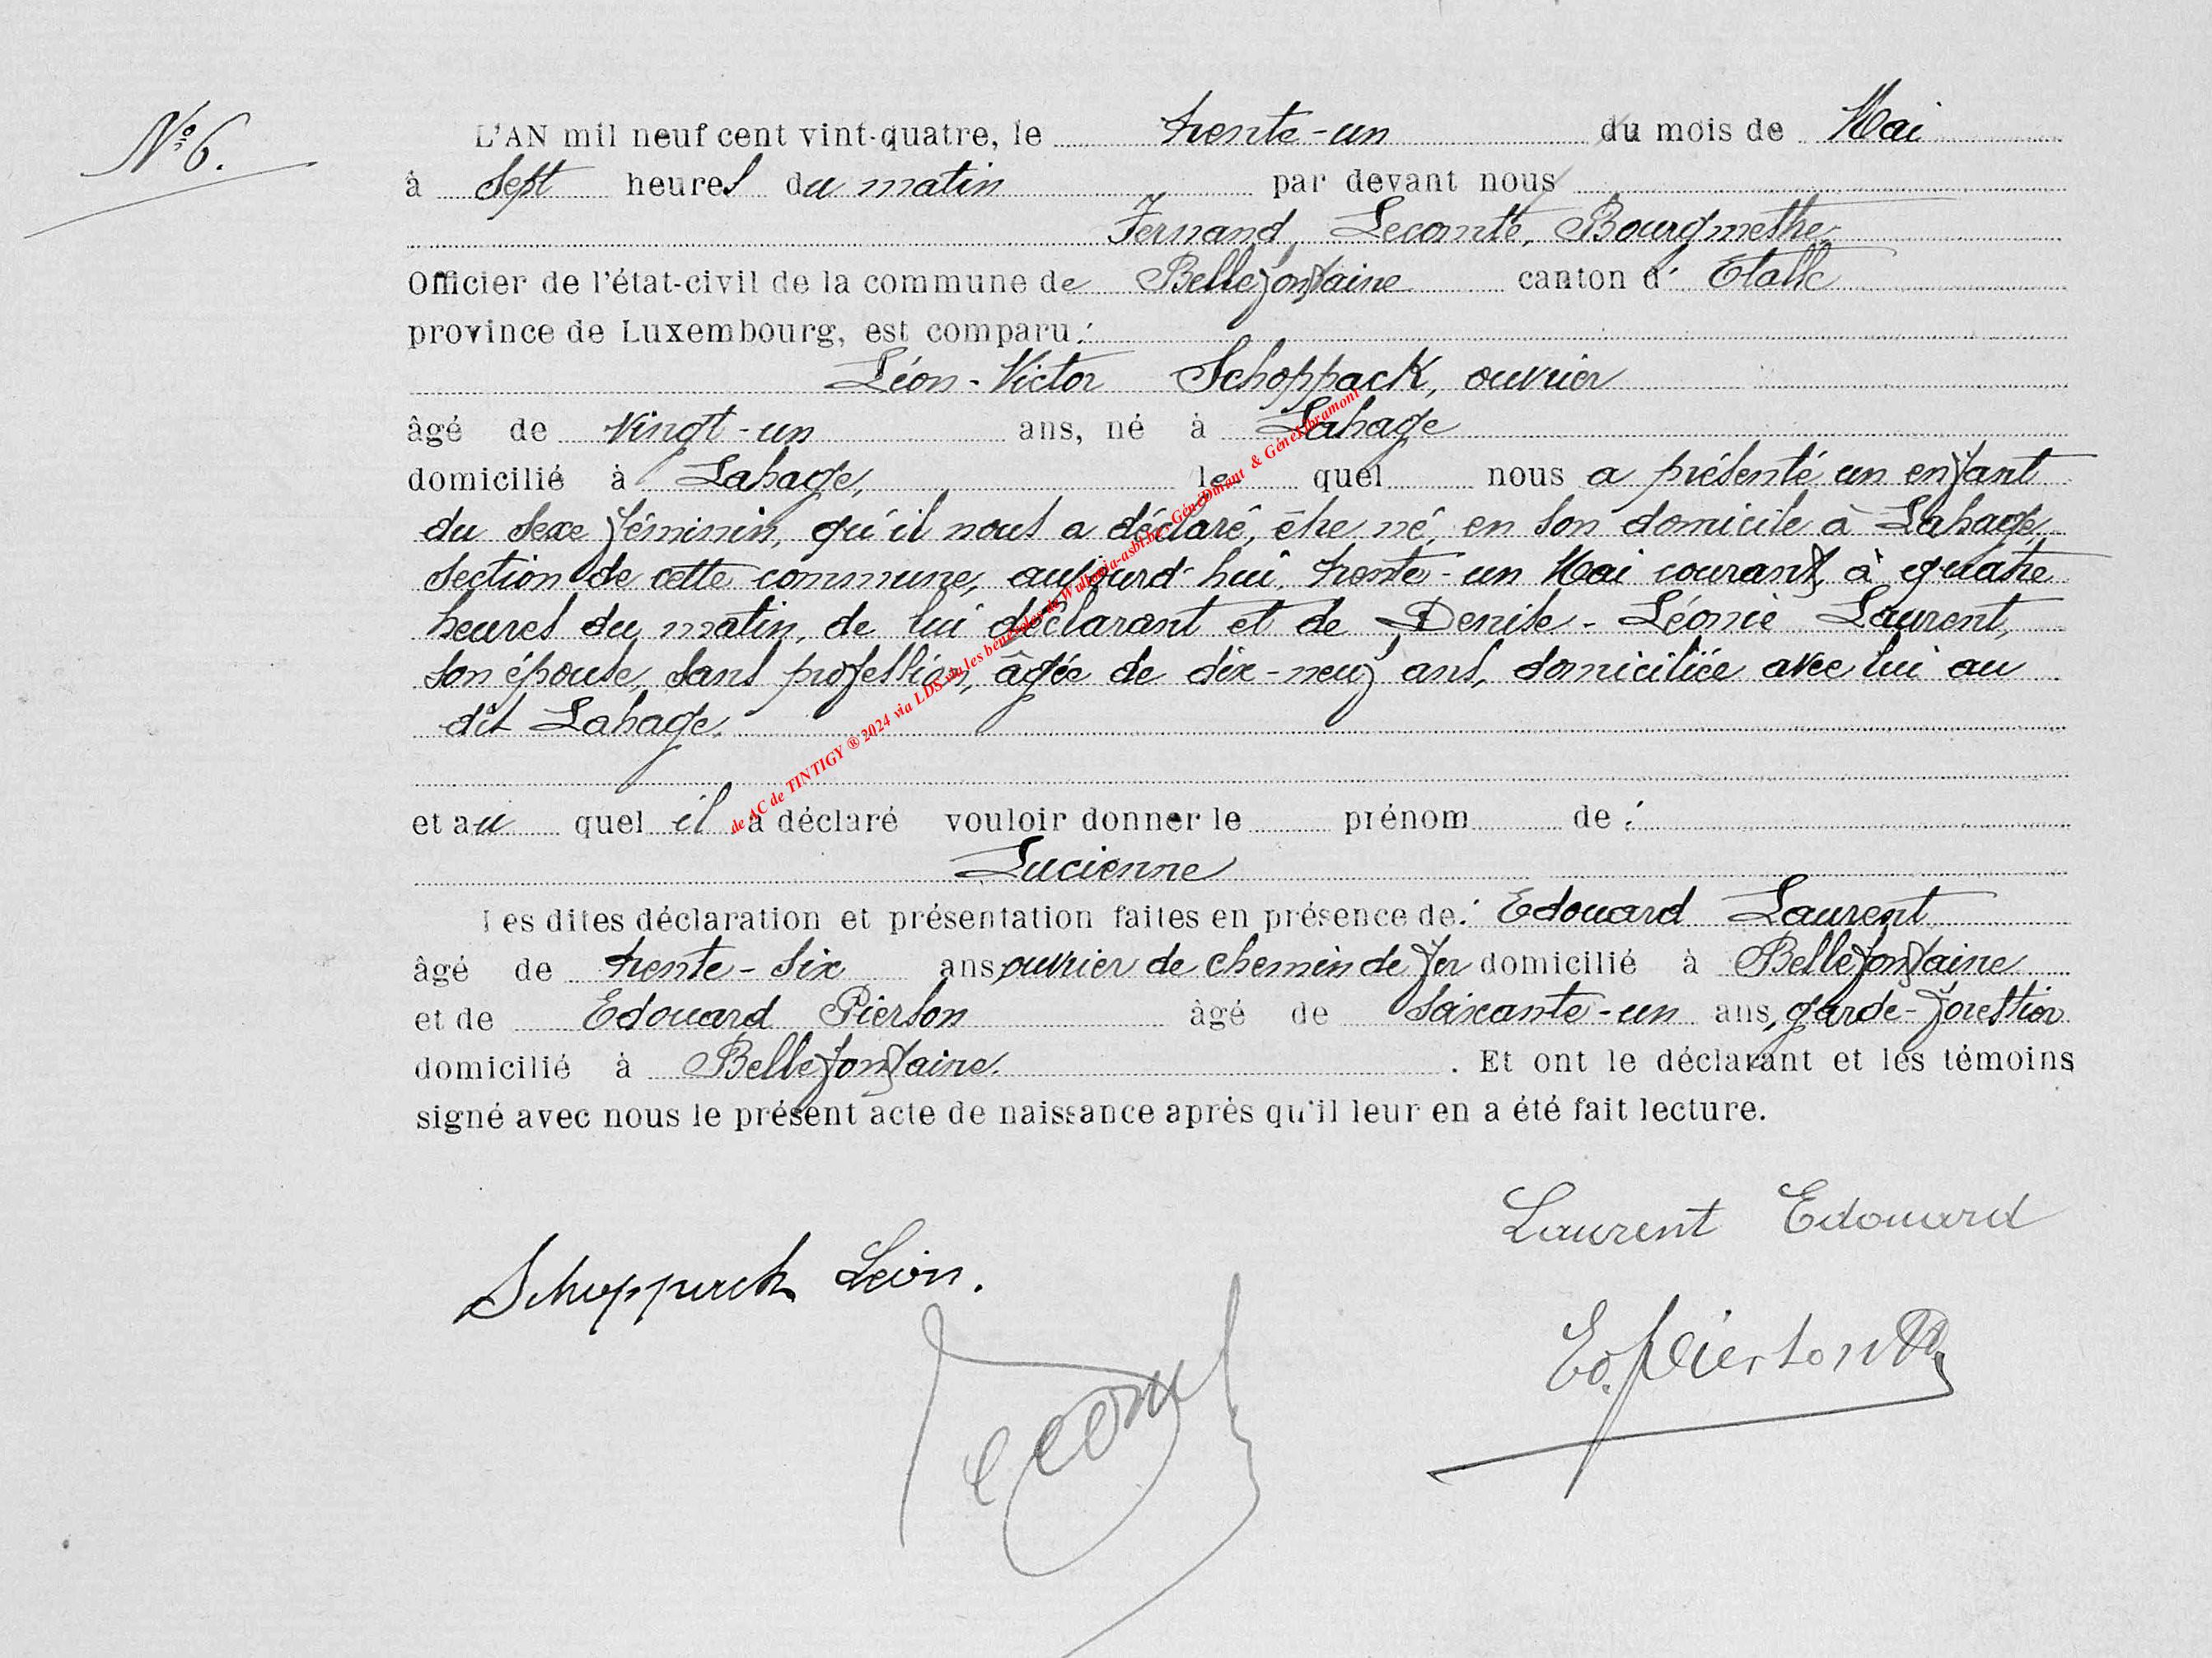 N° 6.
L'AN mil neuf cent vint-quatre, le trente-un du mois de Mai
à sept heures du matin par devant nous
Fernand Lecomte, Bourgmestre,
Officier de l'état-civil de la commune de Bellefontaine canton d' Etalle
province de Luxembourg, est comparu :
Léon-Victor Schoppack, ouvrier
âgé de vingt-un ans, né à Lahage
domicilié à Lahage, le quel nous a présenté un enfant
du sexe féminin, qu'il nous a déclaré, être né, en son domicile à Lahage,
section de cette commune, aujourd'hui, trente-un Mai courant, à quatre
heures du matin, de lui déclarant et de Denise-Léonie Laurent,
son épouse, sans profession, âgée de dix-neuf ans, domiciliée avec lui au
dit Lahage.
et au quel il a déclaré vouloir donner le prénom de :
Lucienne
Les dites déclaration et présentation faites en présence de : Edouard Laurent,
âgé de trente-six ans, ouvrier de chemin de fer domicilié à Bellefontaine
et de Edouard Pierson âgé de soixante-un ans, garde-forestier
domicilié à Bellefontaine. . Et ont le déclarant et les témoins
signé avec nous le présent acte de naissance après qu'il leur en a été fait lecture.
Laurent Edouard
Schoppack Léon.
Ed. Pierson
Lecomte
de AC de TINTIGY ® 2024 via LDS via les bénévoles de Wallonia-asbl.be , GénéDinant & GénéLibramont